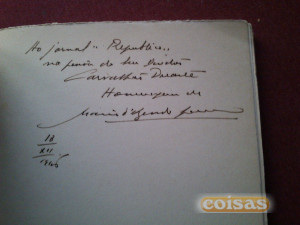 Ao jornal "República",
na pessôa do seu
Carvalhão Duarte
Homenagem de
18
XII
1946
coisas